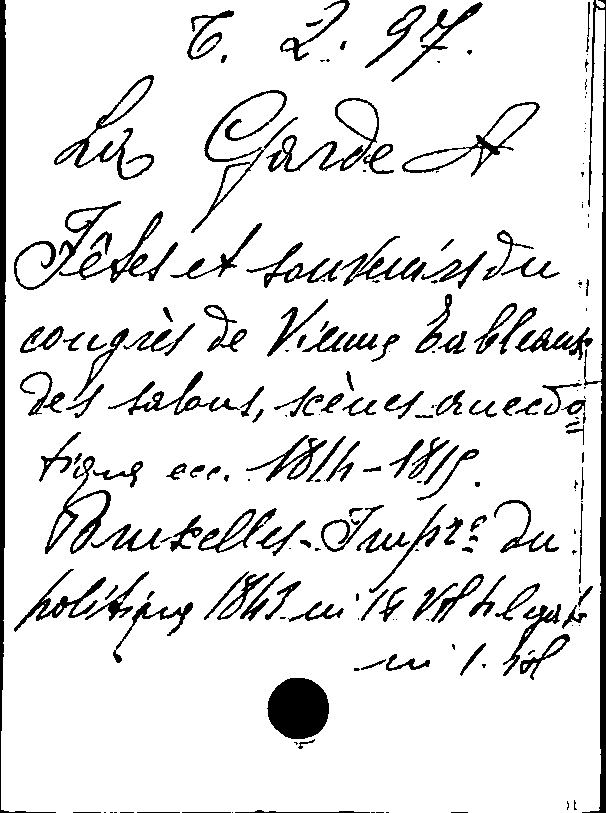 T. 2. 97.
La Garde A
Fêtes et souvenirs du
congrès de Vienne tableaux
des salons, scènes anecdo
tique ecc. 1814-1815.
Bruxelles - Impre du
politique 1843 in 12 Vol
in 1. Vol